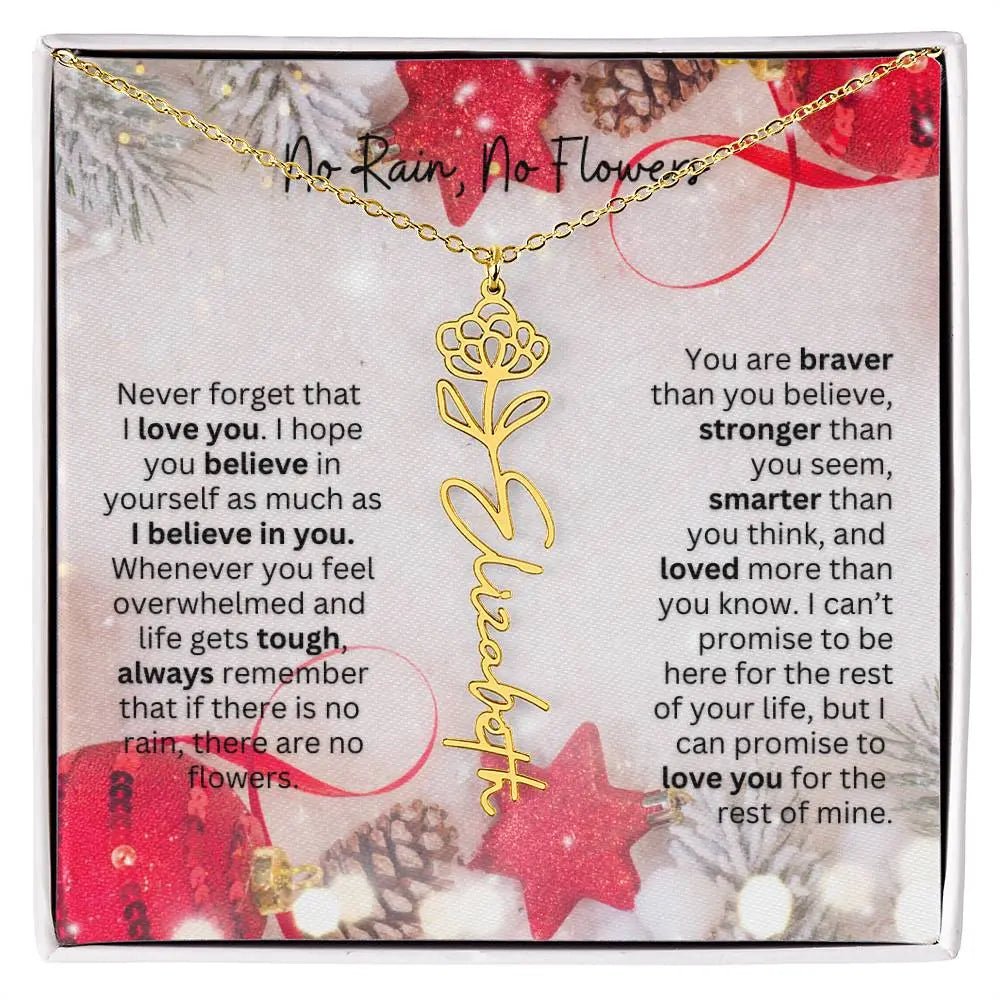 No Rain, No Flowers
Never forget that
I love you. I hope
you believe in
yourself as much as
I believe in you.
Whenever you feel
overwhelmed and
life gets tough,
always remember
that if there is no
rain, there are no
flowers.
Elizabeth
You are braver
than you believe,
stronger than
you seem,
smarter than
you think, and
loved more than
you know. I can’t
promise to be
here for the rest
of your life, but I
can promise to
love you for the
rest of mine.